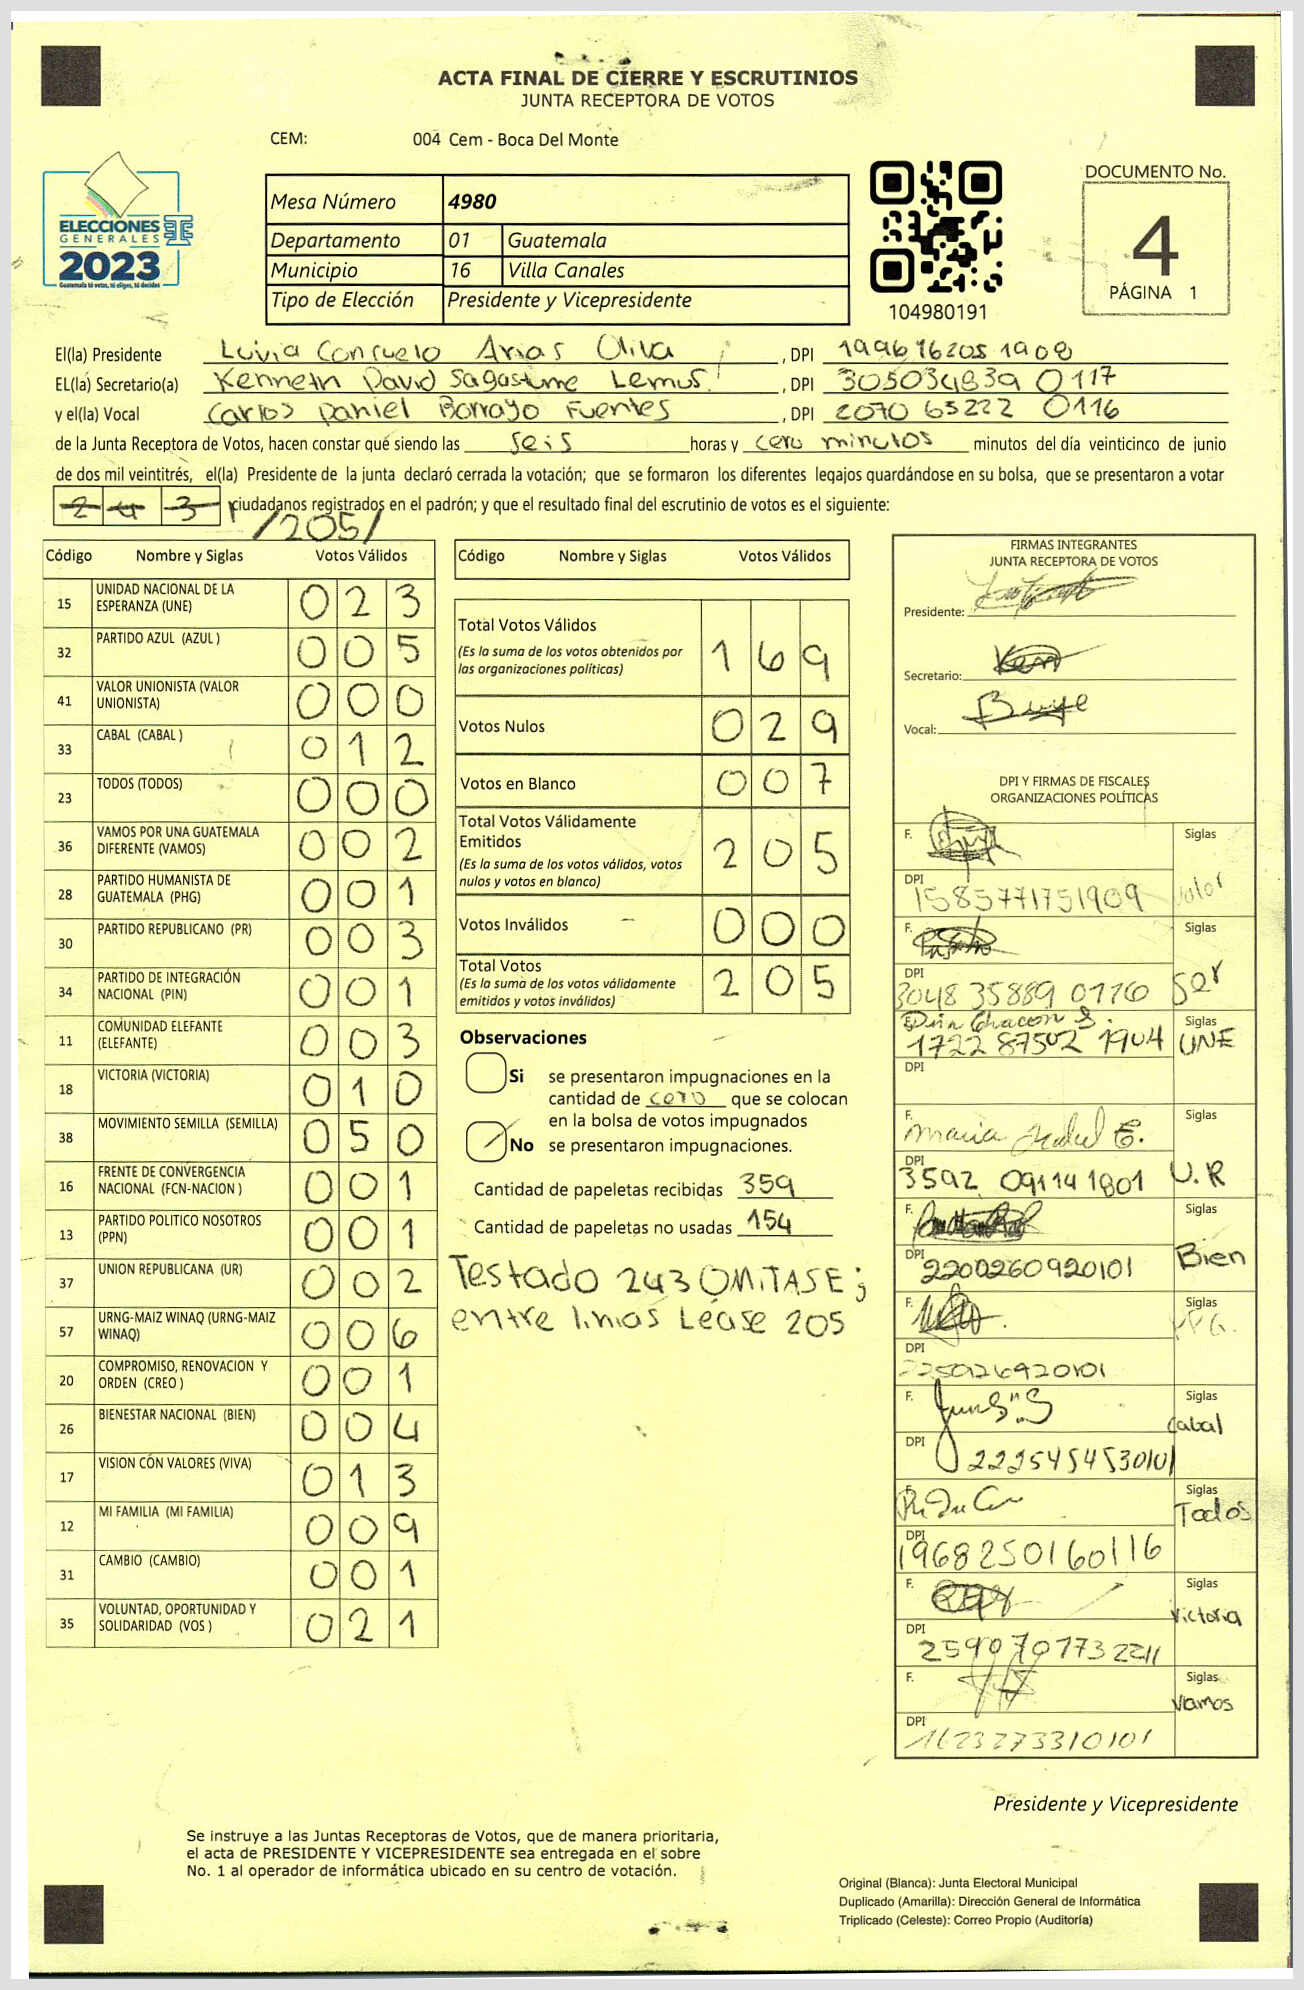 ACTA FINAL DE CIERRE Y ESCRUTINIOS
JUNTA RECEPTORA DE VOTOS
CEM: 004 Cem - Boca Del Monte
ELECCIONES
GENERALES
2023
Guatemala tú votas, tú eliges, tú decides
Mesa Número 4980
Departamento 01 Guatemala
Municipio 16 Villa Canales
Tipo de Elección Presidente y Vicepresidente
104980191
DOCUMENTO No.
4
PÁGINA 1
El(la) Presidente Luivia Consuelo Arias Oliva , DPI 1996 16205 1908
EL(la) Secretario(a) Kenneth David Sagastume Lemus , DPI 305034839 0117
y el(la) Vocal Carlos Daniel Borrayo Fuentes , DPI 2070 63222 0116
de la Junta Receptora de Votos, hacen constar qué siendo las seis horas y cero minutos minutos del día veinticinco de junio
de dos mil veintitrés, el(la) Presidente de la junta declaró cerrada la votación; que se formaron los diferentes legajos guardándose en su bolsa, que se presentaron a votar
243 ciudadanos registrados en el padrón; y que el resultado final del escrutinio de votos es el siguiente:
/205/
Código Nombre y Siglas Votos Válidos
15 UNIDAD NACIONAL DE LA ESPERANZA (UNE) 023
32 PARTIDO AZUL (AZUL ) 005
41 VALOR UNIONISTA (VALOR UNIONISTA) 000
33 CABAL (CABAL ) 012
23 TODOS (TODOS) 000
36 VAMOS POR UNA GUATEMALA DIFERENTE (VAMOS) 002
28 PARTIDO HUMANISTA DE GUATEMALA (PHG) 001
30 PARTIDO REPUBLICANO (PR) 003
34 PARTIDO DE INTEGRACIÓN NACIONAL (PIN) 001
11 COMUNIDAD ELEFANTE (ELEFANTE) 003
18 VICTORIA (VICTORIA) 010
38 MOVIMIENTO SEMILLA (SEMILLA) 050
16 FRENTE DE CONVERGENCIA NACIONAL (FCN-NACION ) 001
13 PARTIDO POLITICO NOSOTROS (PPN) 001
37 UNION REPUBLICANA (UR) 002
57 URNG-MAIZ WINAQ (URNG-MAIZ WINAQ) 006
20 COMPROMISO, RENOVACION Y ORDEN (CREO ) 001
26 BIENESTAR NACIONAL (BIEN) 004
17 VISION CON VALORES (VIVA) 013
12 MI FAMILIA (MI FAMILIA) 009
31 CAMBIO (CAMBIO) 001
35 VOLUNTAD, OPORTUNIDAD Y SOLIDARIDAD (VOS ) 021
Código Nombre y Siglas Votos Válidos
Total Votos Válidos 169
(Es la suma de los votos obtenidos por
las organizaciones políticas)
Votos Nulos 029
Votos en Blanco 007
Total Votos Válidamente
Emitidos 205
(Es la suma de los votos válidos, votos
nulos y votos en blanco)
Votos Inválidos 000
Total Votos 205
(Es la suma de los votos válidamente
emitidos y votos inválidos)
Observaciones
Si se presentaron impugnaciones en la
cantidad de cero que se colocan
en la bolsa de votos impugnados
No se presentaron impugnaciones.
Cantidad de papeletas recibidas 359
Cantidad de papeletas no usadas 154
Testado 243 OMITASE;
entre lineas Léase 205
FIRMAS INTEGRANTES
JUNTA RECEPTORA DE VOTOS
Presidente:
Secretario:
Vocal:
DPI Y FIRMAS DE FISCALES
ORGANIZACIONES POLÍTICAS
F. Siglas
DPI 1585771751909 Valor
F. Siglas
DPI 3048 35889 0116 Ser
F. Chacon S. Siglas
1722 87502 1904 UNE
DPI
F. Maria Isabel E. Siglas
DPI 3592 09114 1801 U.R
F. Siglas
DPI 2200260920101 Bien
F. Siglas
DPI 2250126920101
F. Siglas
DPI 2225454530101 Cabal
F. Siglas
DPI 1968250160116 Todos
F. Siglas
DPI 2590707732211 Victoria
F. Siglas
DPI 1623273310101 Vamos
Presidente y Vicepresidente
Se instruye a las Juntas Receptoras de Votos, que de manera prioritaria,
el acta de PRESIDENTE Y VICEPRESIDENTE sea entregada en el sobre
No. 1 al operador de informática ubicado en su centro de votación.
Original (Blanca): Junta Electoral Municipal
Duplicado (Amarilla): Dirección General de Informática
Triplicado (Celeste): Correo Propio (Auditoría)